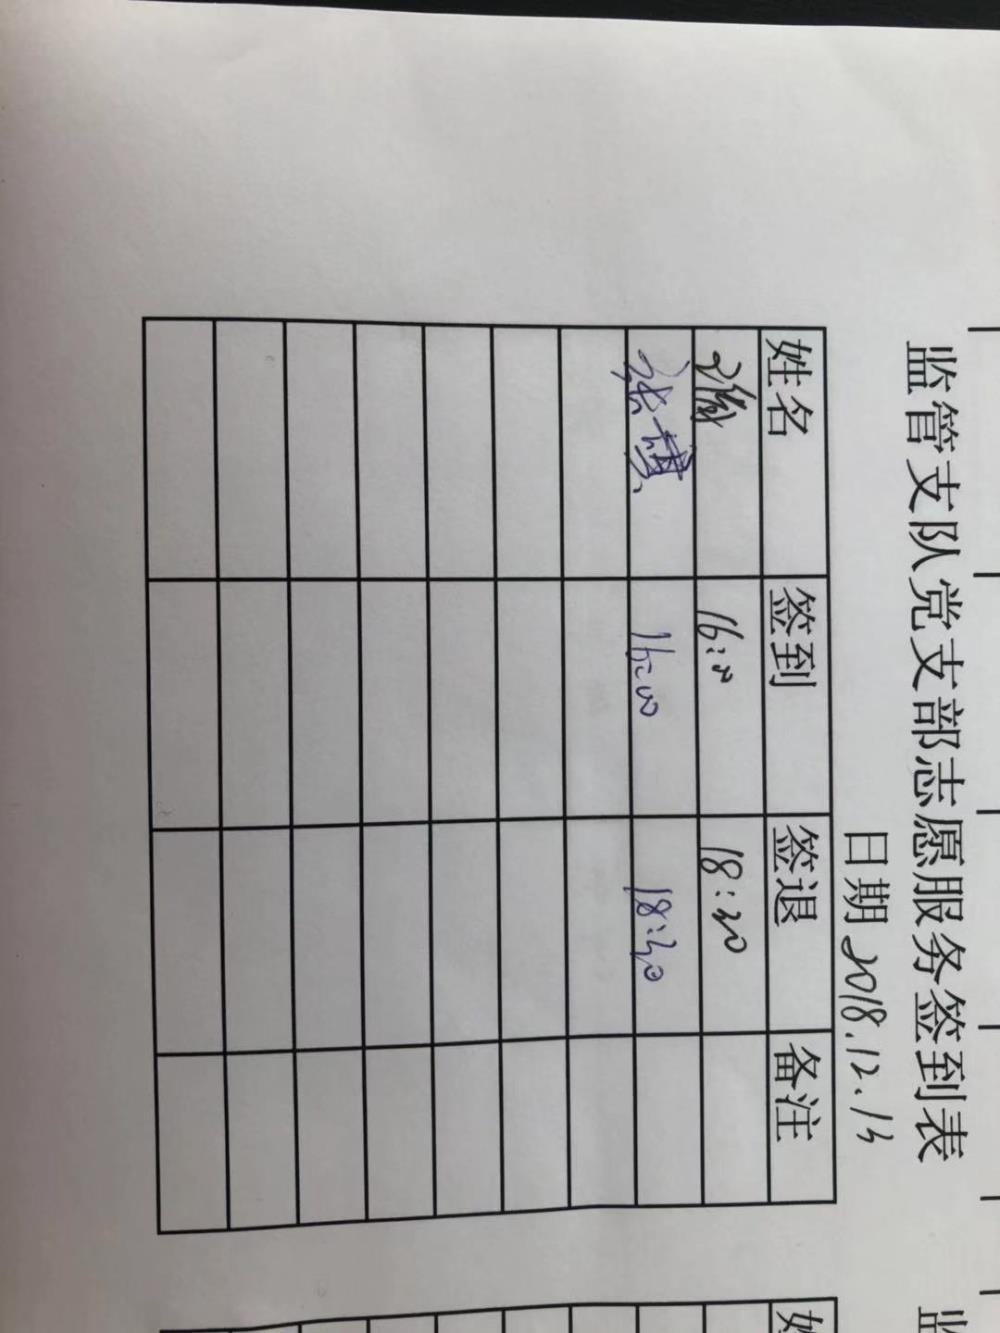 监管支队党支部志愿服务签到表
日期 2018.12.13
姓名 签到 签退 备注
16:00 18:30
张 16:00 18:30
姓
监